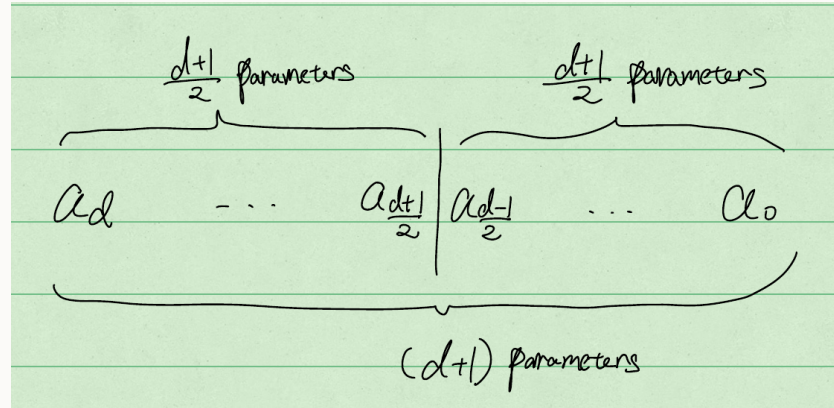 \frac{d+1}{2} parameters \frac{d+1}{2} parameters
a_d ... a_{\frac{d+1}{2}} | a_{\frac{d-1}{2}} ... a_0
(d+1) parameters